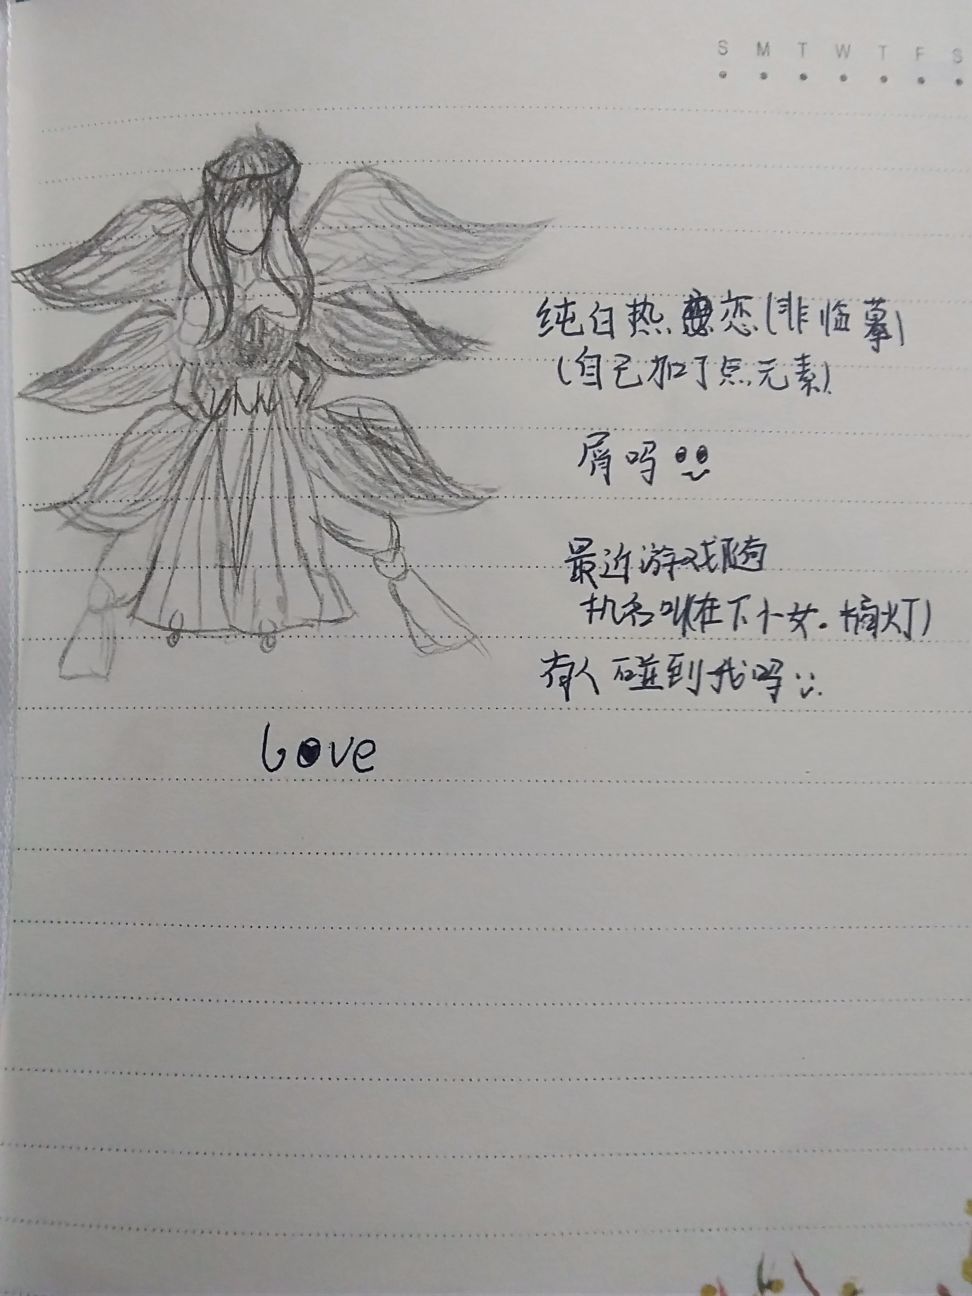 S M T W T F S
纯白热恋(非临摹)
(自己加了点元素)
屑吗
最近游戏随
机名叫在下小女。摘灯)
有人碰到我吗
Love